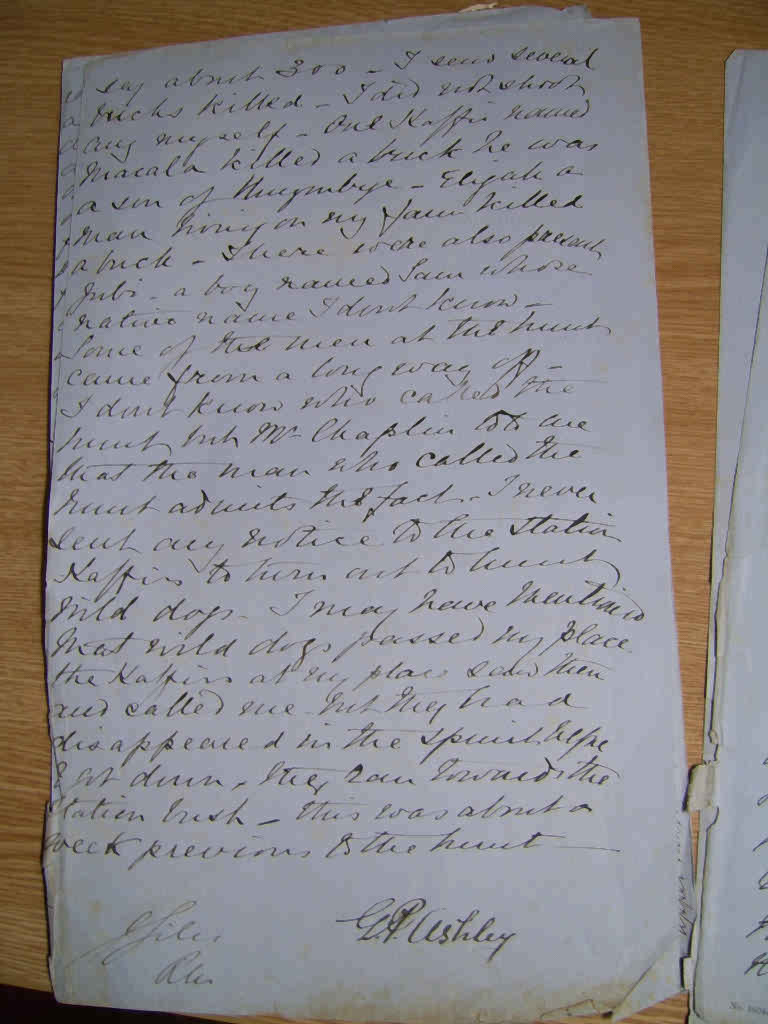 say about 300 - I saw several
bucks killed - I did not shoot
any myself - One Kaffir named
Macala killed a buck he was
a son of - Elijah a
man living on my farm killed
a buck - There were also present
Jubi - a boy named Sam whose
native name I dont know -
Some of the men at the hunt
came from a long way off -
I dont know who called the
hunt but Mr Chaplin told me
that the man who called the
hunt admits the fact - I never
sent any notice to the station
Kaffirs to turn out to hunt
wild dogs - I may have mentioned
that wild dogs passed my place
the Kaffirs at my place saw them
and called me but they had
disappeared in the before
I got down, they ran towards the
station bush - this was about a
week previous to the hunt
G.P. Ashley
J Giles
RM